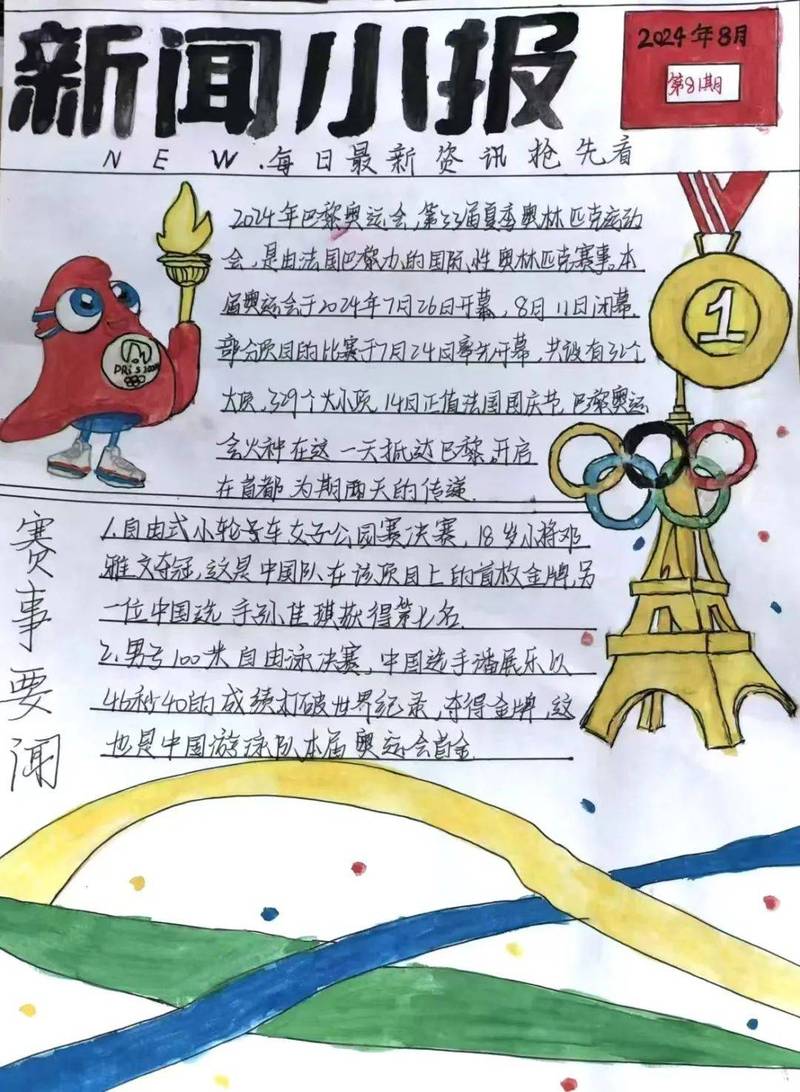 新闻小报
2024年8月
第81期
NEW.每日最新资讯抢先看
2024年巴黎奥运会,第33届夏季奥林匹克运动
会,是由法国巴黎办的国际性奥林匹克赛事。本
届奥运会于2024年7月26日开幕,8月11日闭幕.
部分项目的比赛于7月24日率先开幕,共设有32个
大项,329个大小项,14日正值法国国庆节,巴黎奥运
会火种在这一天抵达巴黎,开启
在首都为期两天的传递.
1
赛事要闻
1.自由式小轮车女子公园赛决赛,18岁小将邓
雅文夺冠,这是中国队在该项目上的首枚金牌,另
一位中国选手孙佳琪获得第七名.
2.男子100米自由泳决赛,中国选手潘展乐以
46秒40的成绩打破世界纪录,夺得金牌,这
也是中国游泳队本届奥运会首金.